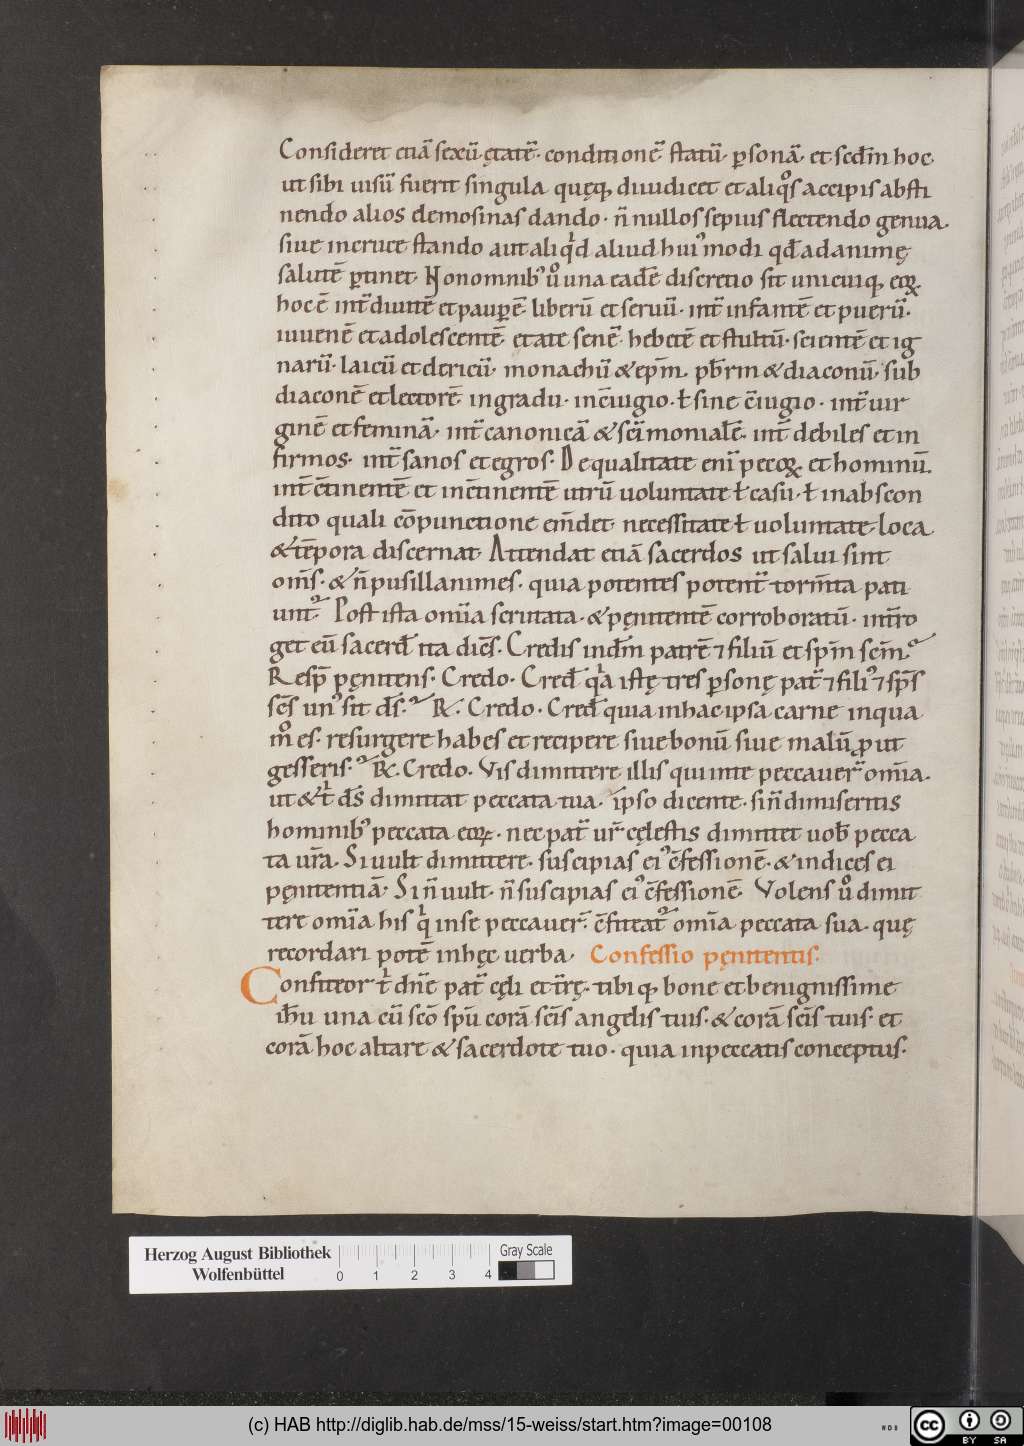 Consideret etiā sexū ętatē· conditionē statū· ꝑsonā· et scd̄m hoc
ut sibi uisū fuerit singula quęq; diiudicet et aliqͦs accipis absti
nendo alios elemosinas dando· n̄ nullos sepius flectendo genua·
siue incruce stando aut aliqͥd aliud huiꝰmodi qd̄ adanimę
salutē ꝑtinet· Non omnibꝰ uͦ una eadē discretio sit unicuiq; eoꝝ
hoc ē int̄ diuitē et pauꝑē· liberū et seruū· int̄ infantē et puerū·
iuuenē et adolescentē· etate senē· hebetē et stultū· scientē et ig
narū· laicū et clericū· monachū & ep̄m· pb̄rm & diaconū· sub
diaconē et lectorē· ingradu· inc̄iugio· ł sine c̄iugio· int̄ uir
ginē et feminā· int̄ canonicā & sc̄imonialē· int̄ debiles et in
firmos· int̄ sanos et egros· De qualitate enī pecoꝝ et hominū·
int̄ c̄tinentē et inc̄tinentē utrū uoluntate ł casu· ł inabscon
dito quali cōpunctione em̄det· necessitate ł uoluntate· loca
& tēpora discernat· Attendat etiā sacerdos ut salui sint
om̄s· & n̄ pusillanimes· quia potentes potent̄ torm̄ta pati
unt̄· Post ista om̄ia scrutata· & pęnitentē corroboratū· int̄ro
get eū sacerd̄ ita dicēs· Credis ind̄m patrē ⁊ filiū et sp̄m sc̄m·
Resp̄ pęnitens· Credo· Cred̄ qͥa istę tres ꝑsonę pat̄ ⁊ filiꝰ ⁊ sp̄s
sc̄s unꝰ sit d̄s· ℞· Credo· Cred̄ quia inhac ipsa carne inqua
mͦ es· resurgere habes et recipere siue bonū siue malū ꝓut
gesseris· ℞· Credo· Vis dimittere illis qui inte peccauer̄ om̄ia·
ut & tͥ d̄s dimittat peccata tua· ipso dicente· si n̄ dimiseritis
hominibꝰ peccata eoꝝ· nec pat̄ ur̄ cęlestis dimittet uob̄ pecca
ta ur̄a· Si uult dimittere· suscipias eiꝰ c̄fessionē· & indices ei
pęnitentiā· Si n̄ uult· n̄ suscipias eiꝰ c̄fessionē· Volens uͦ dimit
tere om̄ia his qͥ inse peccauer̄· c̄fiteat̄ om̄ia peccata sua· quę
recordari potē inhęc uerba· Confessio pęnitentis·
Confiteor tͥ dn̄e pat̄ cęli et t̄rę· tibi q; bone et benignissime
ih̄u una cū sc̄o sp̄u corā sc̄is angelis tuis· & corā sc̄is tuis· et
corā hoc altare & sacerdote tuo· quia inpeccatis conceptus·
Herzog August Bibliothek
Wolfenbüttel
0 1 2 3 4
Gray Scale
(c) HAB http://diglib.hab.de/mss/15-weiss/start.htm?image=00108
WDB
cc
BY SA